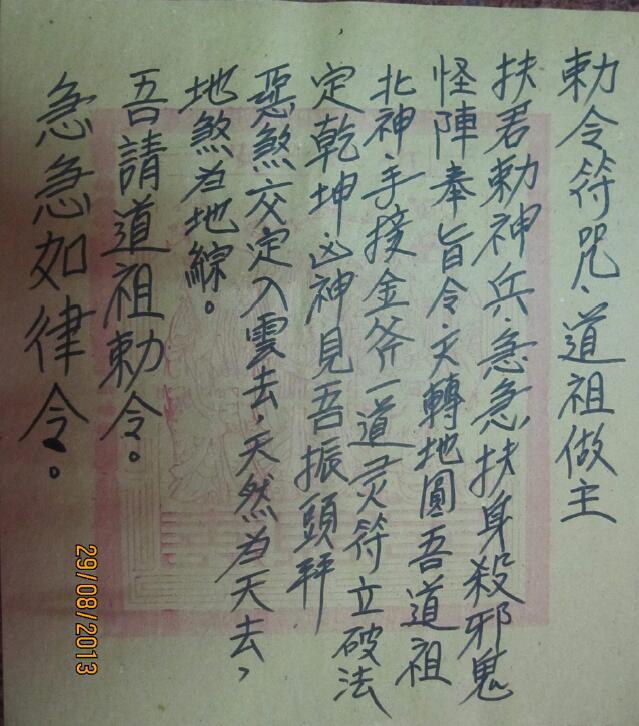 勅令符咒、道祖做主
扶君勅神兵、急急扶身殺邪鬼
怪陣奉旨令、天轉地圓吾道祖
北神、手接金斧一道灵符立破法
定乾坤凶神見吾振頭拜
惡煞交定入雲去，天然為天去，
地煞為地綜。
吾請道祖勅令。
急急如律令。
29/08/2013